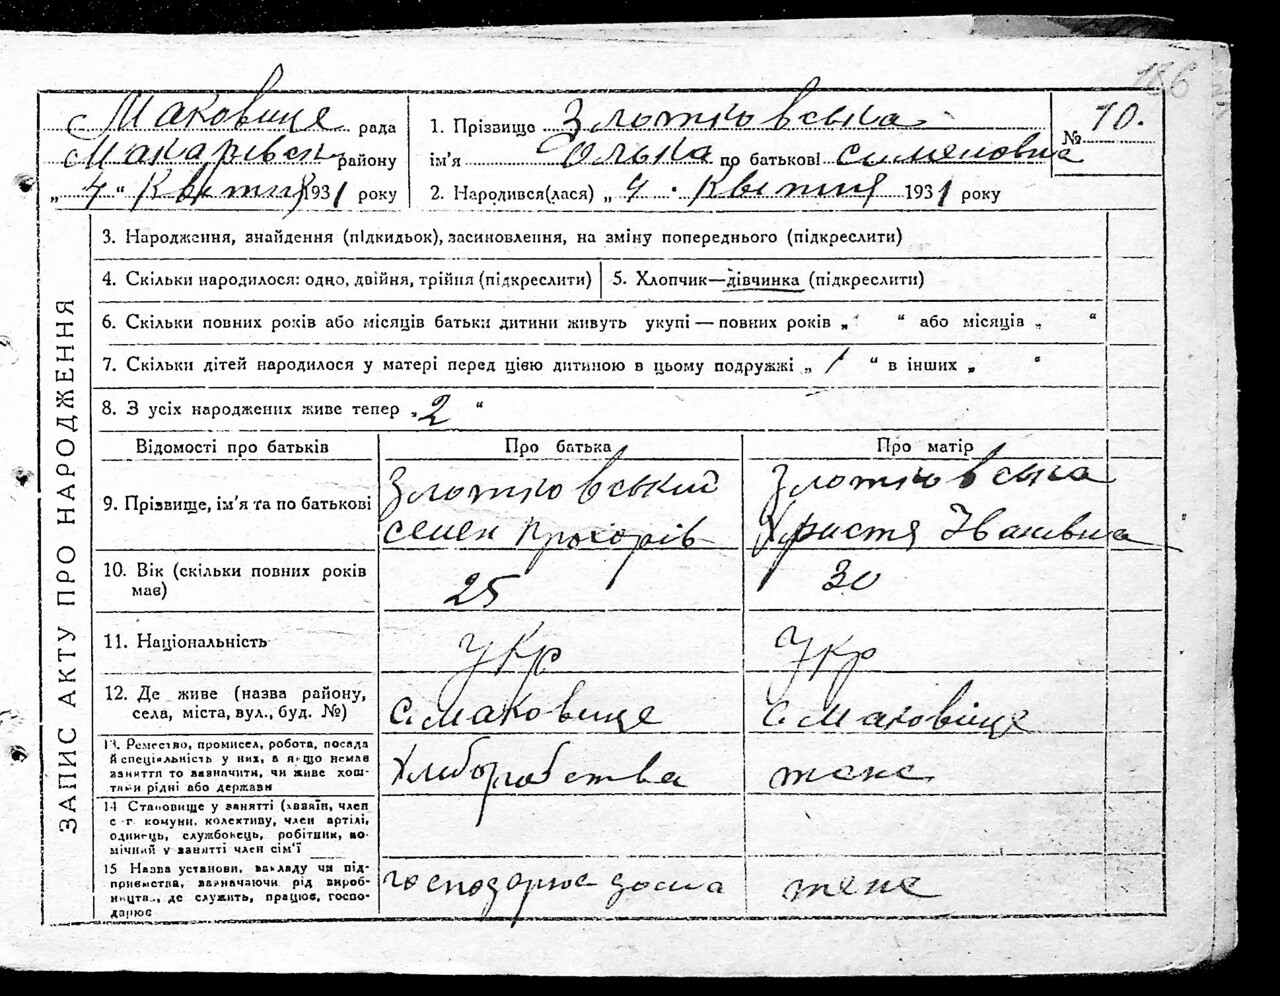 186
Маковище рада
Макарівськ району
„4“ Квітня 1931 року
1. Прізвище Злотковська
ім'я Олька по батькові Семеновна
№ 10.
2. Народився(лася) „ 4. Квітня 1931 року
ЗАПИС АКТУ ПРО НАРОДЖЕННЯ
3. Народження, знайдення (підкидьок), засиновлення, на зміну попереднього (підкреслити)
4. Скільки народилося: одно, двійня, трійня (підкреслити)
5. Хлопчик—дівчинка (підкреслити)
6. Скільки повних років або місяців батьки дитини живуть укупі — повних років „ “ або місяців „ “
7. Скільки дітей народилося у матері перед цією дитиною в цьому подружжі „ 1 “ в інших „ “
8. З усіх народжених живе тепер „2“
Відомості про батьків
Про батька
Про матір
9. Прізвище, ім'я та по батькові
Злотковський
Семен Прохорів
Злотковська
Христя Іванівна
10. Вік (скільки повних років
має)
25
30
11. Національність
Укр
Укр
12. Де живе (назва району,
села, міста, вул., буд. №)
с. Маковище
с. Маковіще
13. Ремество, промисел, робота, посада
й спеціяльність у них, а якщо немає
заняття то зазначити, чи живе кош-
тами рідні або держави
Хлиборобства
теже
14 Становище у занятті (хазяїн, член
с.-г. комуни, колективу, член артілі,
одинець, службовець, робітник, по-
мічний у занятті член сім'ї
15 Назва установи, закладу чи під-
приємства, зазначаючи рід вироб-
ництв., де служить, працює, госпо-
дарює
господорює дома
теже